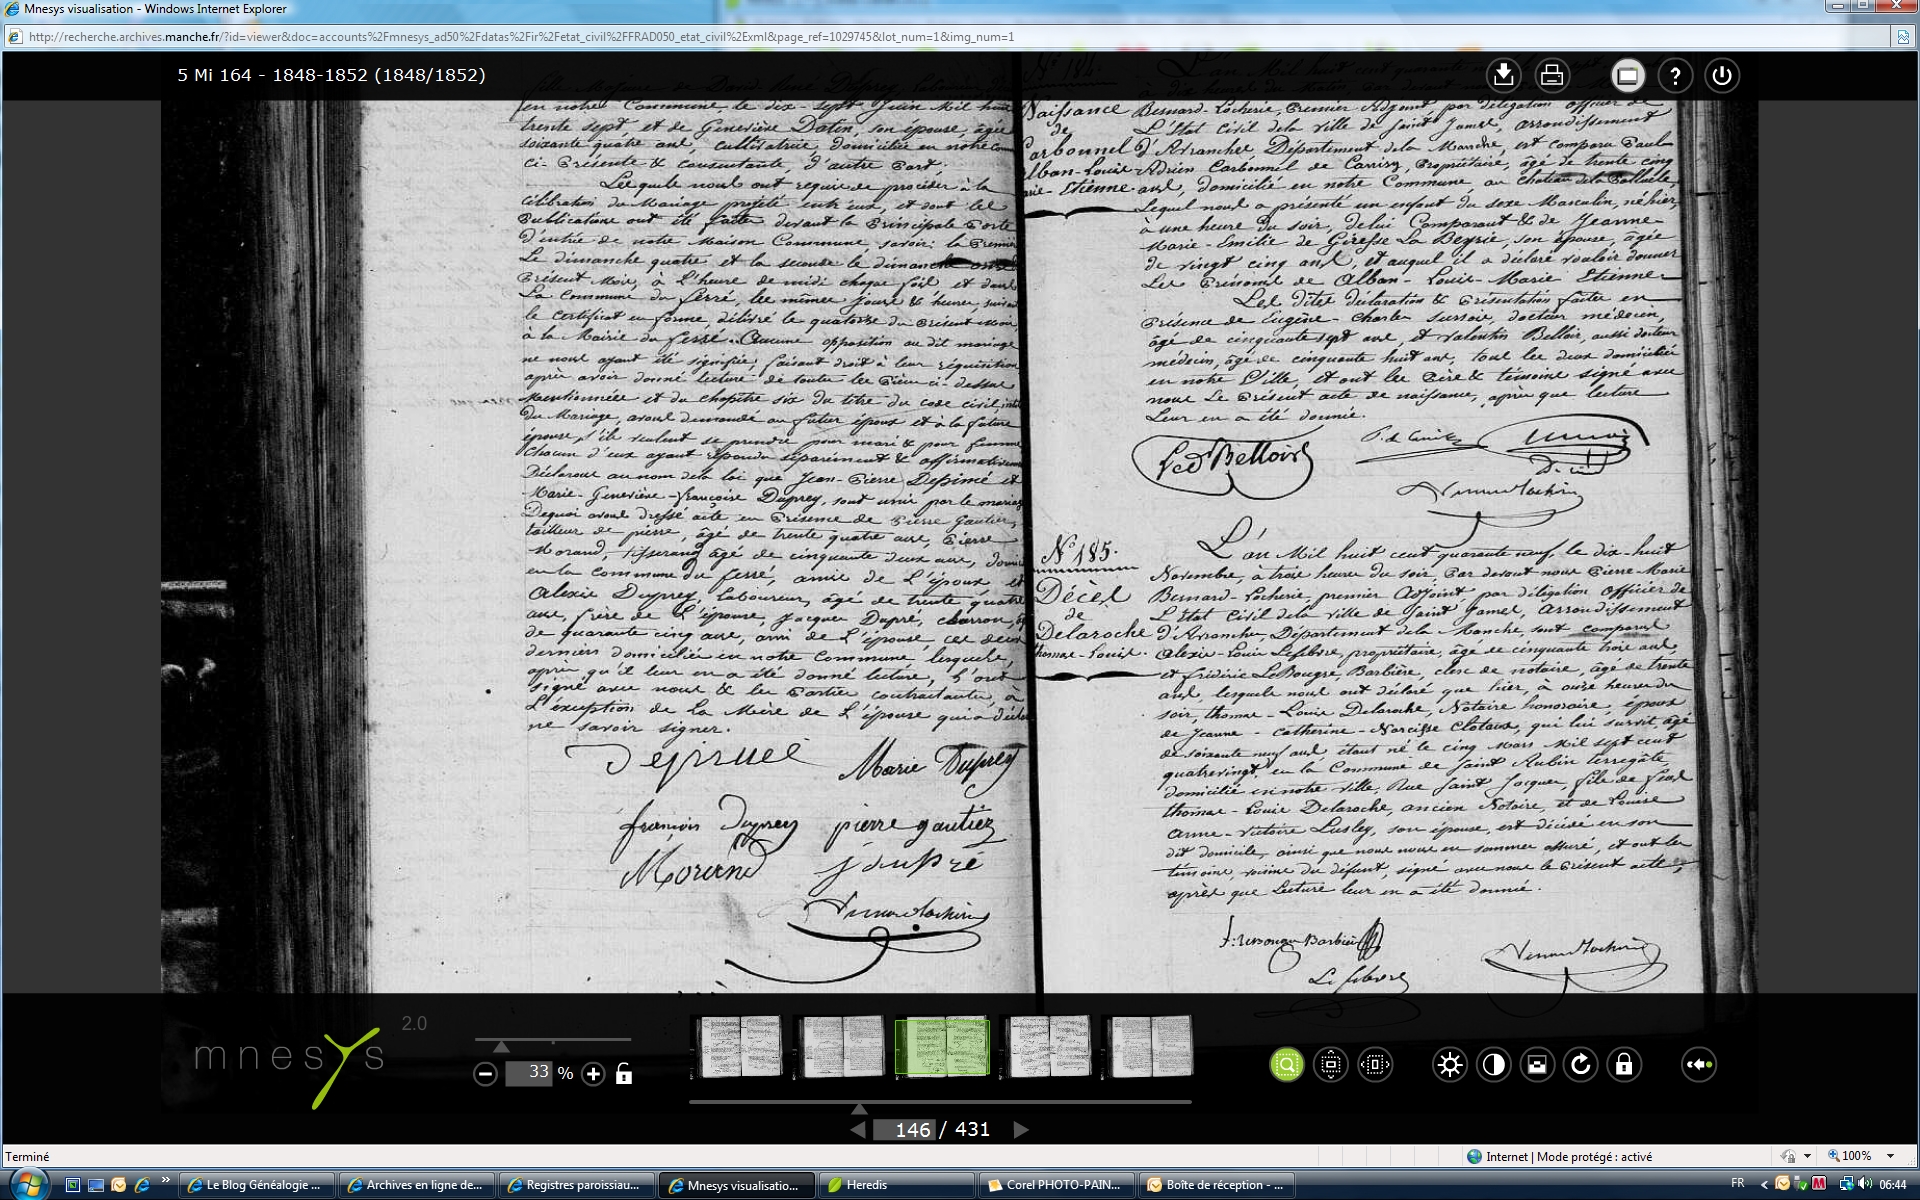 Mnesys visualisation - Windows Internet Explorer
http://recherche.archives.manche.fr/?id=viewer&doc=accounts%2Fmnesys_ad50%2Fdatas%2Fir%2Fetat_civil%2FFRAD050_etat_civil%2Exml&page_ref=1029745&lot_num=1&img_num=1
5 Mi 164 - 1848-1852 (1848/1852)
fille Majeure de David René Duprey,
en notre Commune le dix-sept Juin Mil huit
trente sept, et de Geneviève Datin, son épouse, âgée
soixante quatre ans, cultivatrice, domiciliée en notre
ci-Présente & consentante, d'autre Part.
Lesquels nous ont requis de procéder à la
célébration du Mariage projeté entr'eux, et dont les
Publications ont été faites devant la Principale Porte
d'entrée de notre Maison Commune savoir: la
Le dimanche quatre et la seconde le dimanche onze
Présent Mois, à l'heure de midi chaque fois et dans
La Commune du ferré, les mêmes jours & heure, suivant
le certificat en forme, délivré le quatorze du Présent Mois
à la Mairie du ferré. Aucune opposition au dit mariage
ne nous ayant été signifiée; faisant droit à leur réquisition
après avoir donné lecture de toutes les Pièces ci-dessus
Mentionnées et du chapitre six du titre du code civil,
du Mariage, avons demandé au futur époux et à la future
épouse s'ils veulent se prendre pour mari & pour femme
chacun d'eux ayant répondu séparément & affirmativement
Déclarons au nom de la loi que Jean-Pierre et
Marie-Geneviève-françoise Duprey, sont unis par le mariage
Dequoi avons dressé acte en Présence de Pierre Gautier,
tailleur de pierre, âgé de trente quatre ans, Pierre
Morand, tisserand âgé de cinquante deux ans,
en la commune du ferré, amis de L'époux et
Alexis Duprey, laboureur, âgé de trente quatre
ans, frère de L'épouse, Jacques Dupré, charron,
de quarante cinq ans, ami de L'épouse, ces deux
derniers domiciliés en notre Commune, lesquels,
après qu'il leur en a été donné lecture, ont
signé avec nous & les Parties contractantes, à
L'exception de la Mère de L'épouse qui a
ne savoir signer.
Marie Duprey
françois Duprey pierre gautier
Morand j dupré
N° 184.
L'an Mil huit cent quarante
à dix heures du Matin, Par devant
Naissance
de
Carbonnel
Alban-Louis
Marie-Etienne
Bernard-Locherie, Premier Adjoint par délégation officier de
L'Etat Civil de la ville de Saint James, arrondissement
d'Avranches Département de la Manche, est comparu Paul
Adrien Carbonnel de Canisy, Propriétaire, âgé de trente cinq
ans, domicilié en notre Commune, au chateau de la Palluelle,
Lequel nous a présenté un enfant du sexe Masculin, né hier,
à une heure du soir, de lui Comparant & de Jeanne
Marie-Emilie de Gireffe La Beyrie, son épouse, âgée
de vingt cinq ans, et auquel il a déclaré vouloir donner
Les Prénoms de Alban-Louis-Marie Etienne
Les dites déclaration & Présentation faites en
Présence de Eugène-Charles docteur médecin,
âgé de cinquante sept ans, et Valentin Belloir, aussi docteur
médecin, âgé de cinquante huit ans, tous les deux domiciliés
en notre Ville, et ont les Père & témoins signé avec
nous Le Présent acte de naissance, après que lecture
Leur en a été donnée.
Belloir
N° 185.
Décès
de
Delaroche
thomas-Louis.
L'an Mil huit cent quarante neuf, le dix-huit
Novembre, à trois heures du soir, Par devant nous Pierre-Marie
Bernard-Locherie, premier Adjoint, par délégation officier de
L'Etat Civil de la Ville de Saint James, arrondissement
d'Avranches, Département de la Manche, sont comparus
Alexis-Louis Lefebvre, propriétaire, âgé de cinquante trois ans
et frédéric LeBougre, Barbière, clerc de notaire, âgé de trente
ans, lesquels nous ont déclaré que hier, à onze heures du
soir, thomas-Louis Delaroche, Notaire honoraire, époux
de Jeanne-Catherine-Narcisse Clotaux, qui lui survit âgé
de soixante neuf ans, étant né le cinq Mars Mil sept cent
quatrevingt, en la Commune de Saint Aubin terregate,
domicilié en notre ville, Rue Saint Jacques, fils de feus
thomas-Louis Delaroche, ancien Notaire, et de Louise
Anne-Victoire Lusley, son épouse, est décédé en son
dit domicile, ainsi que nous nous en sommes assuré, et ont les
témoins, voisins du défunt, signé avec nous le Présent acte,
après que Lecture leur en a été donnée.
Lefebvre
mnesys 2.0
33 %
146 / 431
Terminé
Internet | Mode protégé : activé
100%
Le Blog Généalogie ...
Archives en ligne de...
Registres paroissiau...
Mnesys visualisatio...
Heredis
Corel PHOTO-PAIN...
Boîte de réception - ...
FR
06:44